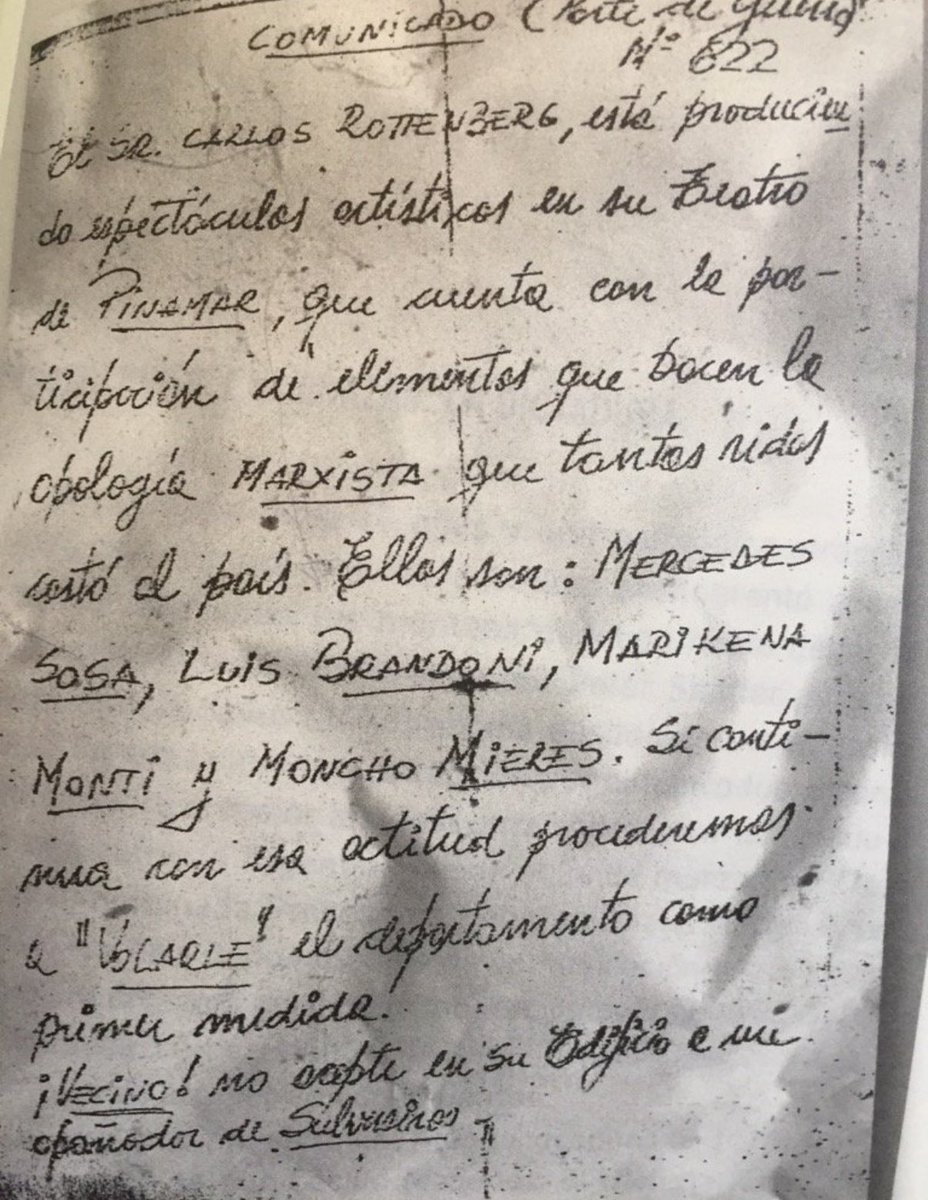 COMUNICADO (Parte de guerra)
Nº 622
El SR. CARLOS ROTTENBERG, está producien
do espectáculos artísticos en su Teatro
de PINAMAR, que cuenta con la par-
ticipación de elementos que hacen la
apología MARXISTA que tantas vidas
costó al país. Ellos son: MERCEDES
SOSA, LUIS BRANDONI, MARIKENA
MONTI y MONCHO MIERES. Si conti-
nua con esa actitud procederemos
a "VOLARLE" el departamento como
primer medida.
¡VECINO! no acepte en su Edificio a un
apañador de Subversivos